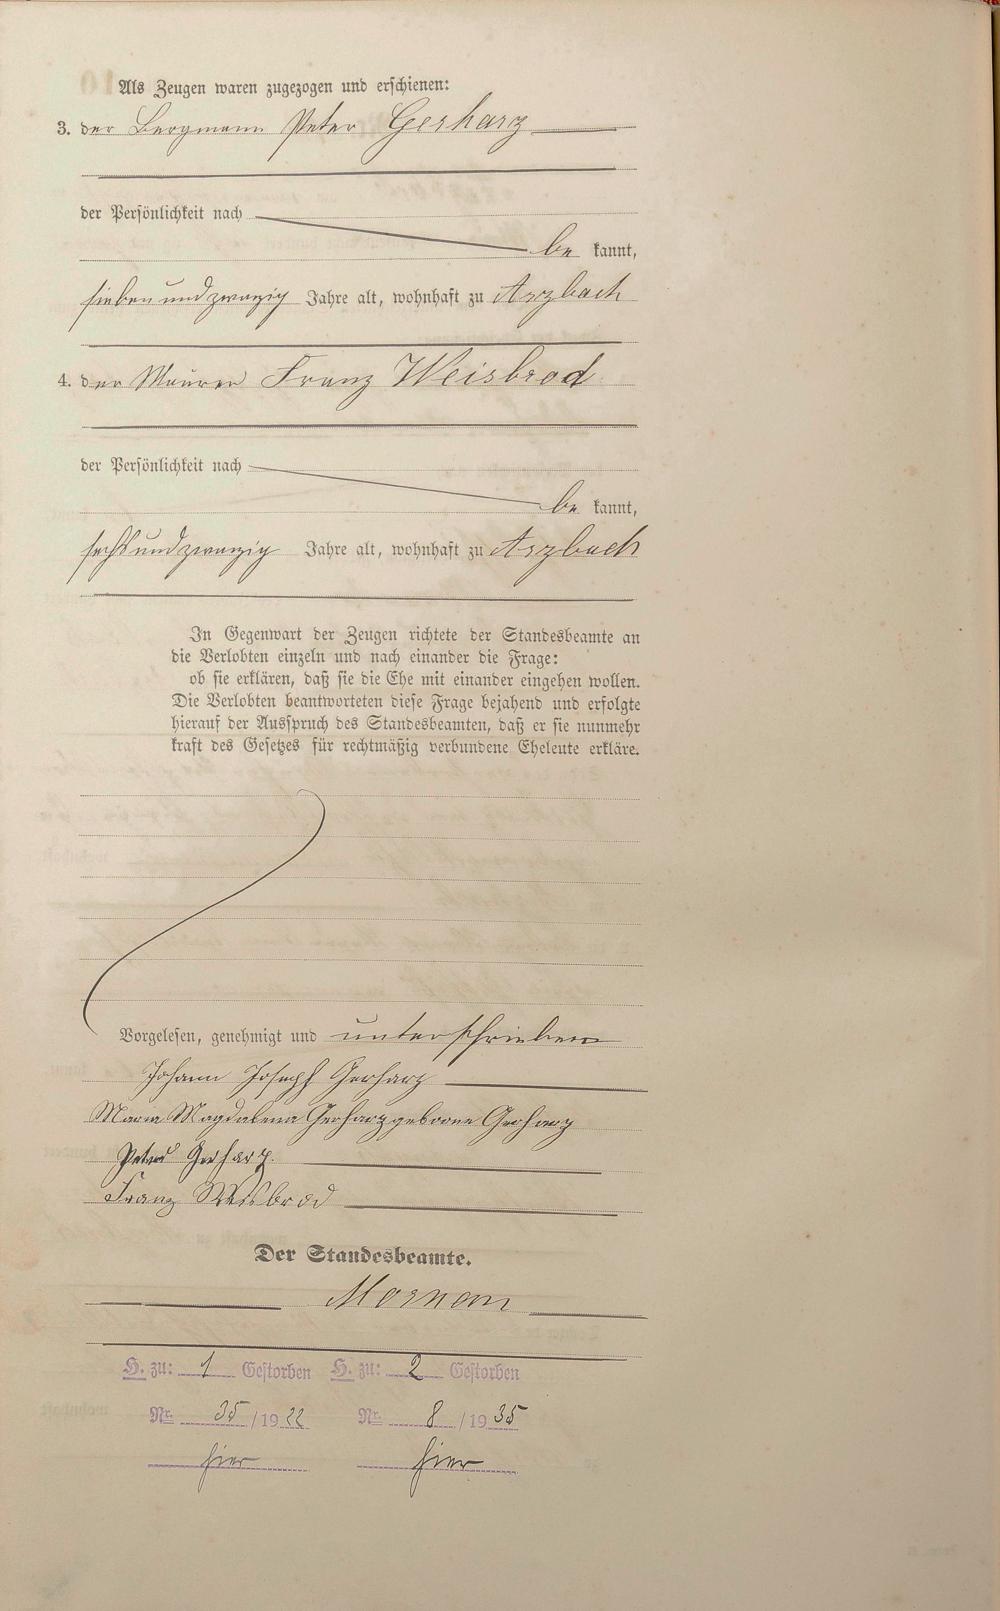 Als Zeugen waren zugezogen und erschienen:
3. der Bergmann Peter Gerharz
der Persönlichkeit nach
be kannt,
siebenundzwanzig Jahre alt, wohnhaft zu Arzbach
4. der Maurer Franz Weisbrod
der Persönlichkeit nach
be kannt,
sechsundzwanzig Jahre alt, wohnhaft zu Arzbach
In Gegenwart der Zeugen richtete der Standesbeamte an
die Verlobten einzeln und nach einander die Frage:
ob sie erklären, daß sie die Ehe mit einander eingehen wollen.
Die Verlobten beantworteten diese Frage bejahend und erfolgte
hierauf der Ausspruch des Standesbeamten, daß er sie nunmehr
kraft des Gesetzes für rechtmäßig verbundene Eheleute erkläre.
Vorgelesen, genehmigt und unterschrieben
Johann Joseph Gerharz
Maria Magdalena Gerharz geborne Gerharz
Peter Gerharz.
Franz Weisbrod
Der Standesbeamte.
H. zu: 1 Gestorben H. zu: 2 Gestorben
Nr. 35 / 19 22 Nr. 8 / 19 35
hier hier